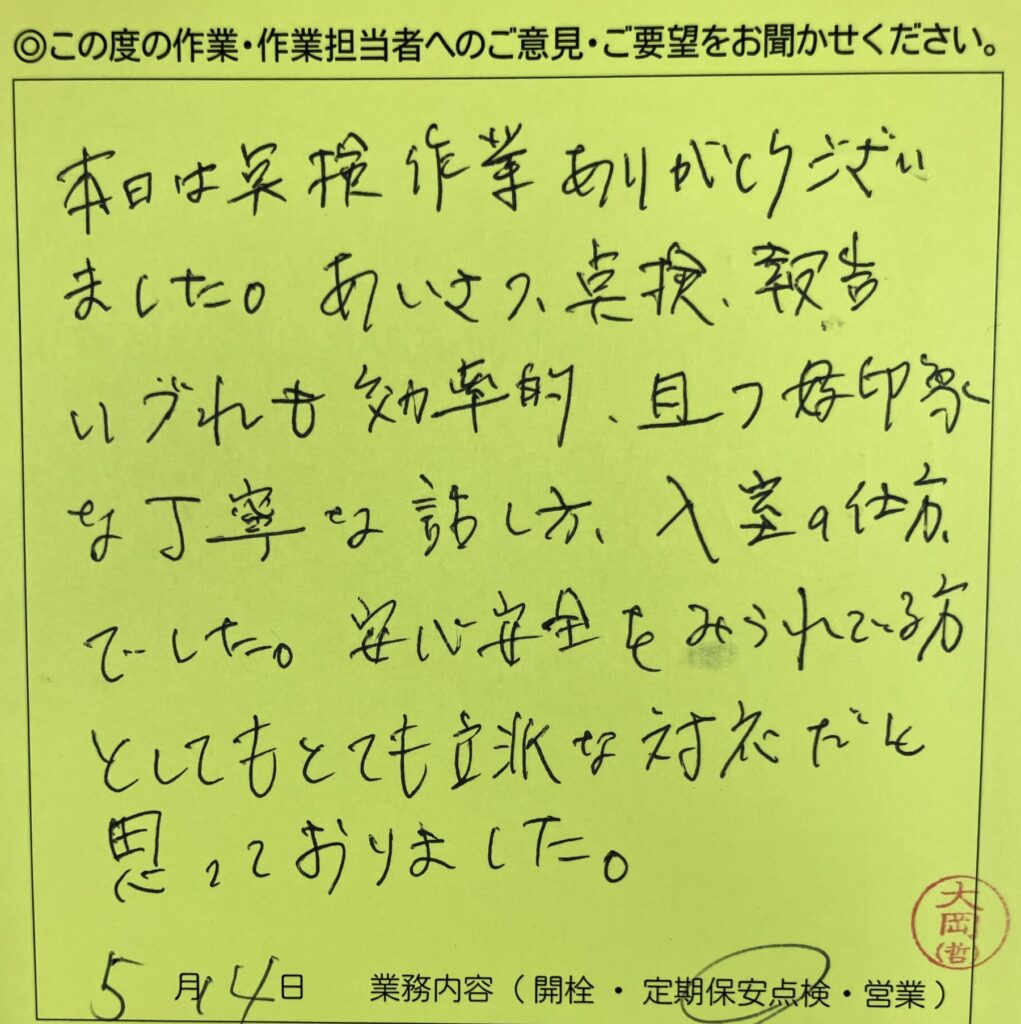 ◎この度の作業・作業担当者へのご意見・ご要望をお聞かせください。
本日は点検作業ありがとうござい
ました。あいさつ、点検、報告
いづれも効率的、且つ好印象
な丁寧な話し方、入室の仕方、
でした。安心安全をみられている方
としてもとても立派な対応だと
思っておりました。
大岡(哲)
5月14日 業務内容(開栓・定期保安点検・営業)